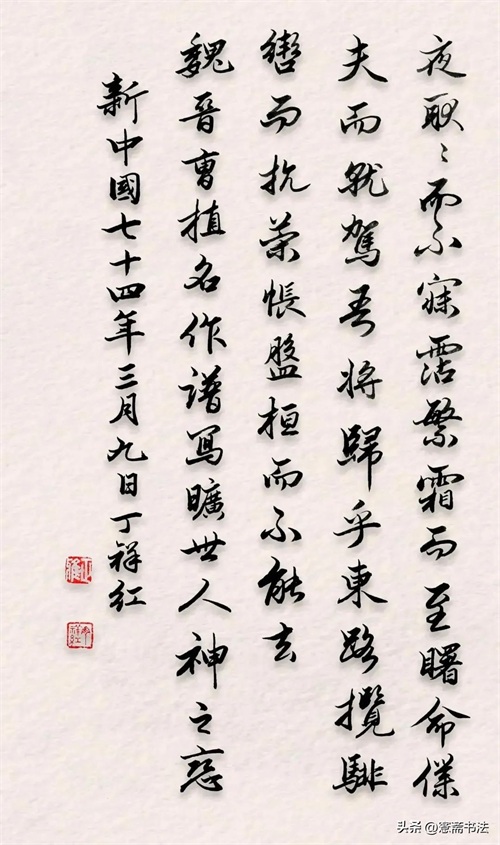 夜耿〻而不寐霑繁霜而至曙命僕
夫而就駕吾将歸乎東路攬騑
轡而抗策悵盤桓而不能去
魏晉曹植名作譜寫曠世人神之戀
新中國七十四年三月九日丁祥红
头条@憲斋书法